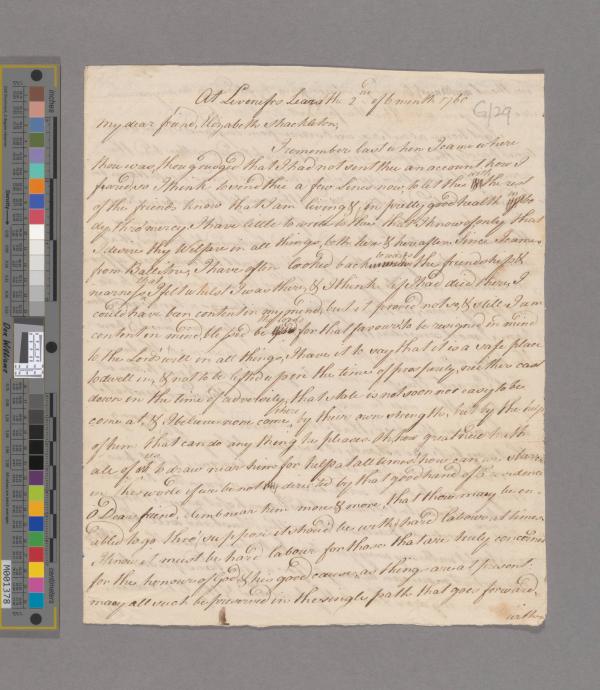 At Levenessos Leara the 2nd of 6 month 1760
G/29
my dear friend, Elizabeth Shackleton,
I remember last when I came where
thou was, thou grudged that I had not sent thee an account how I
fared, so I think to send thee a few lines now, to let thee with the rest
of the friends know that I am living & in pretty good health in bo
dy thro' mercy, I have little to write to thee that I know of only that
I desire thy Welfare in all things, both here & hereafter. Since I came
from Balletore, I have often looked back towards the friendship &
nearness that I felt whilst I was there, & I think if I had died there, I
could have been content in my mind, but it proved not so, & still I am
content in mind, blessed be the Lord for that favour to be resigned in mind
to the Lord's will in all things, I have it to say that it is a safe place
to dwell in, & not to be lifted up in the time of prosperity, neither cast
down in the time of adversity, that state is not soon nor easy to be
come at, & I believe none come there by their own strength, but by the help
of him that can do any thing he pleases, oh how great need hath
all of us to draw near him for help at all times, how can we stand
in this world if we be not directed by that good hand of Providence
O Dear friend, remember him more & more, that thou may be en-
abled to go thro', suppose it should be with hard labour at times
I know it must be hard labour for those that are truly concerned
for the honour of God & his good cause, as things are at present.
may all such be preserved in the single path that goes forward,
with
inches
centimeters
Don Williams
M001378